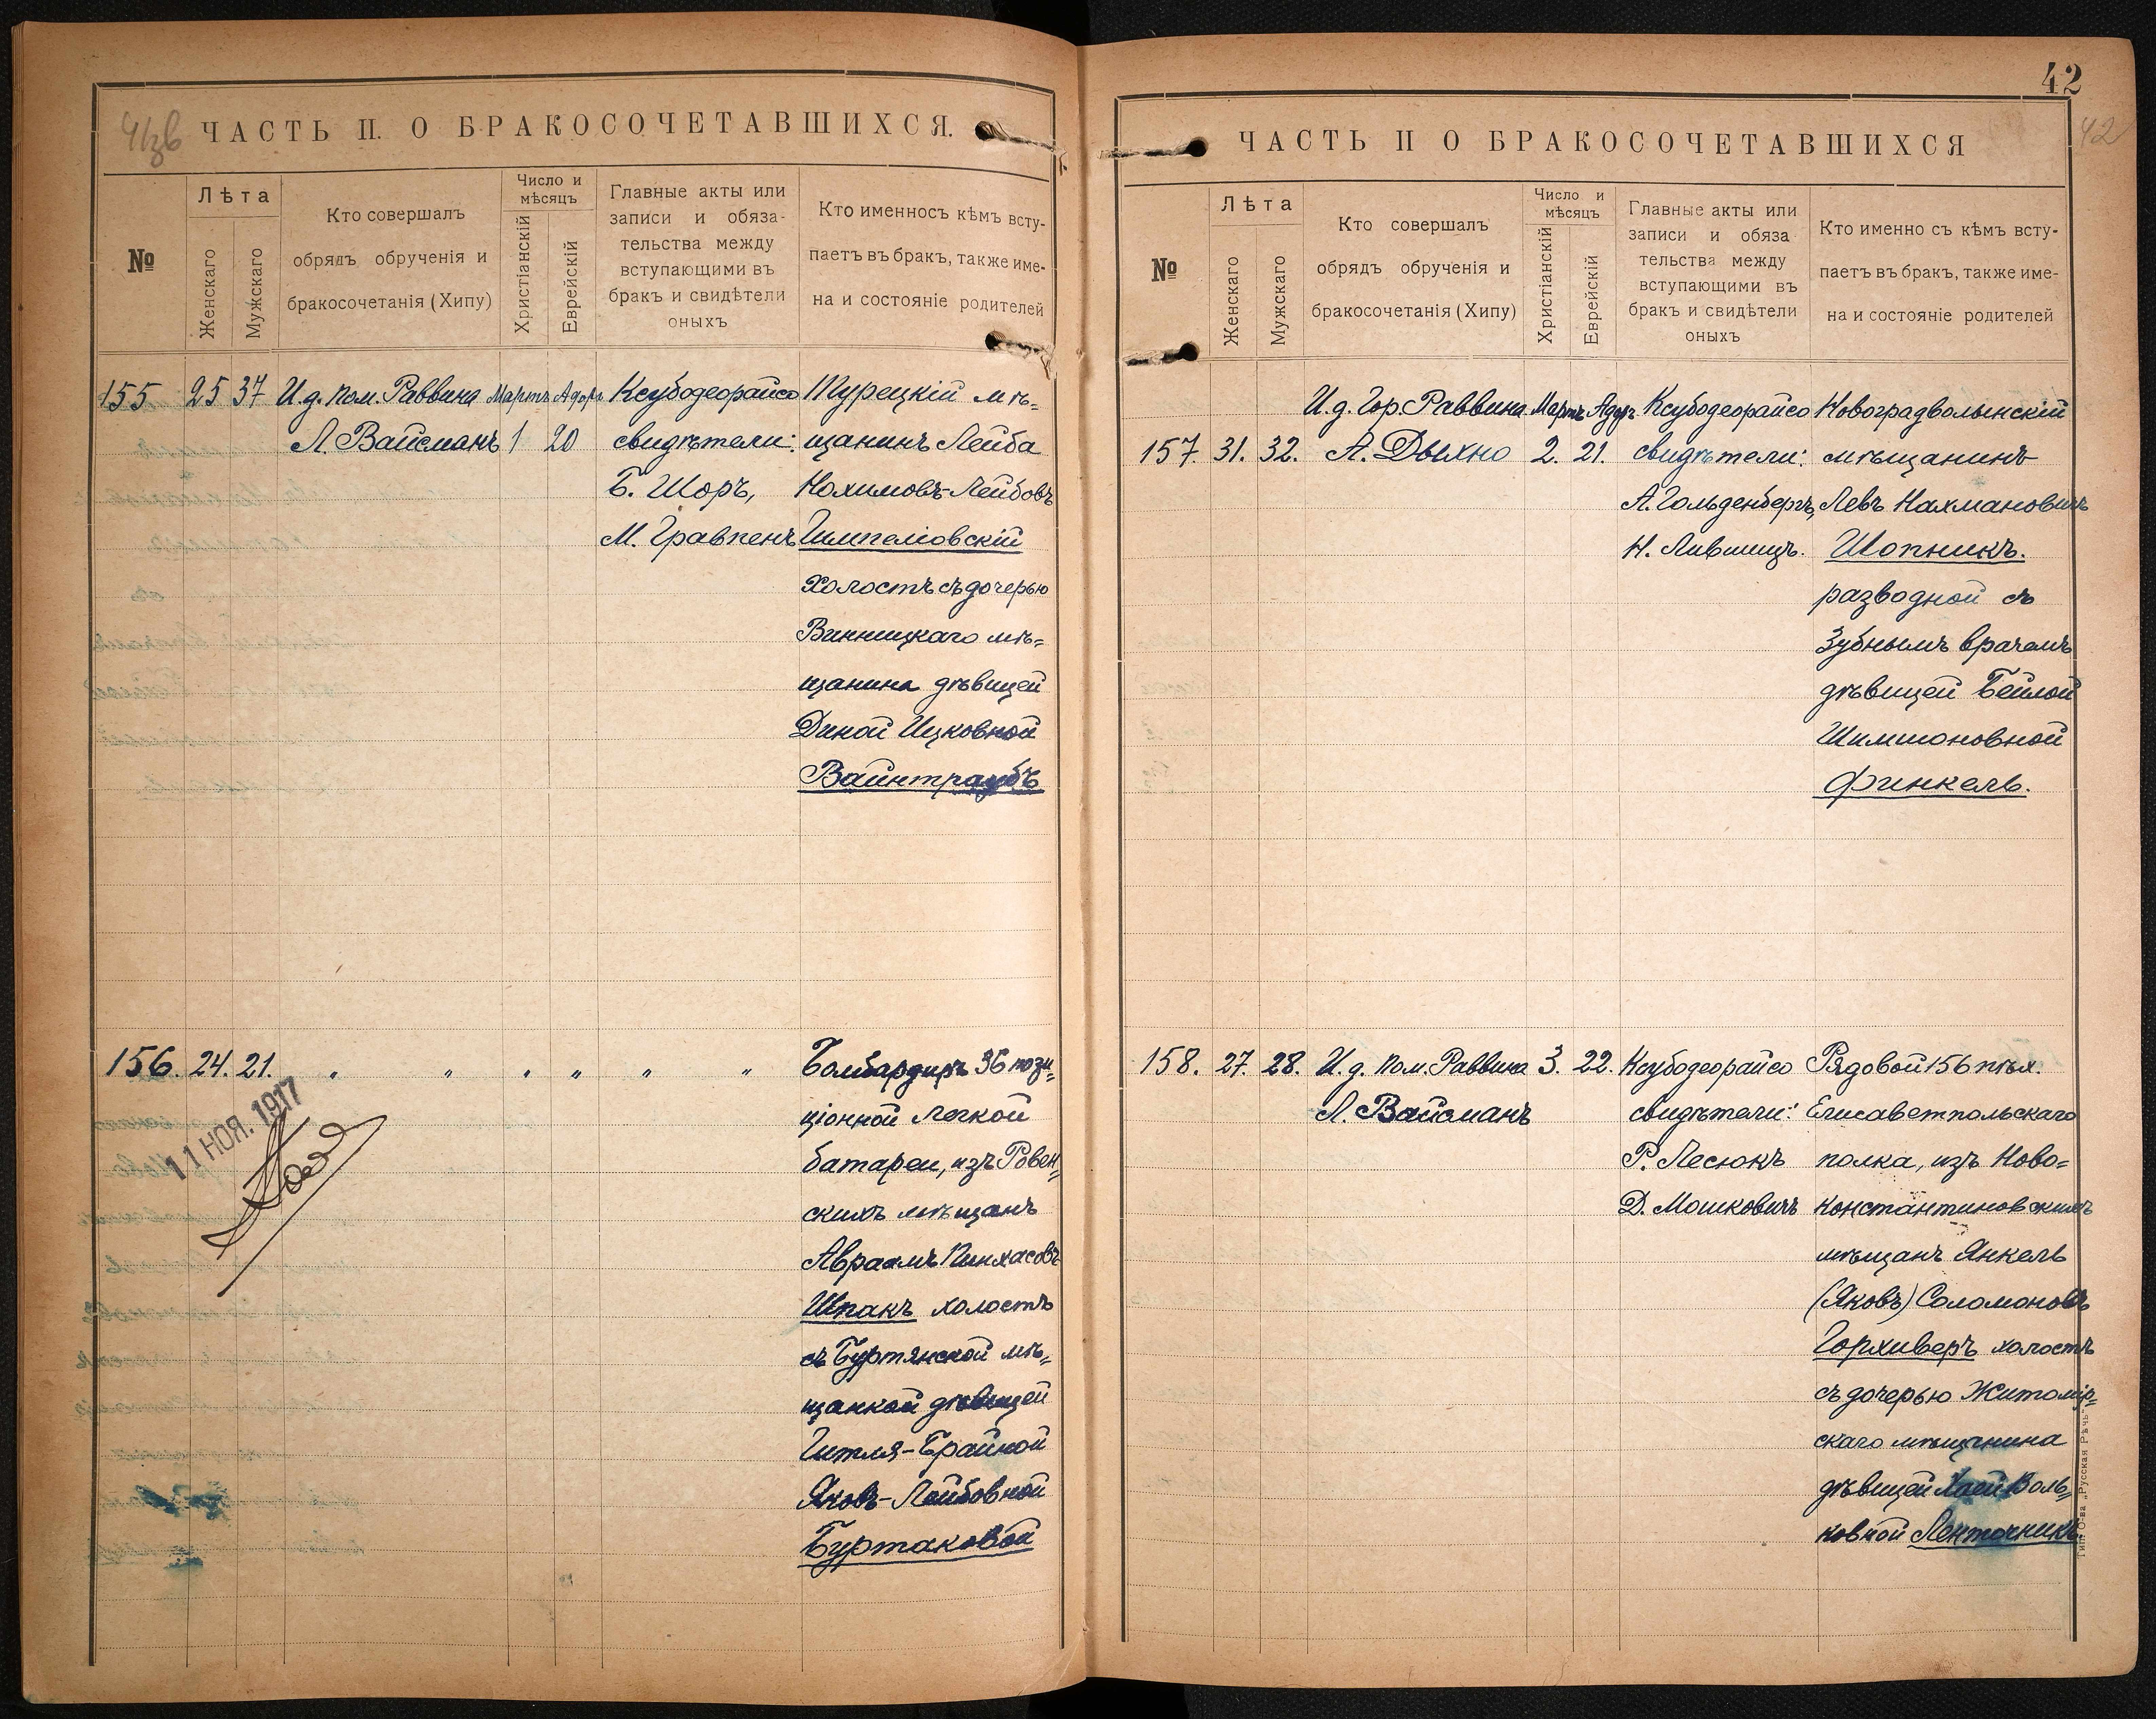 41зв
ЧАСТЬ II. О БРАКОСОЧЕТАВШИХСЯ.
№
Лѣта
Женскаго
Мужскаго
Кто совершалъ
обрядъ обрученія и
бракосочетанія (Хипу)
Число и
мѣсяцъ
Христіанскій
Еврейскій
Главные акты или
записи и обяза-
тельства между
вступающими въ
бракъ и свидѣтели
оныхъ
Кто именносъ кѣмъ всту-
паетъ въ бракъ, также име-
на и состояніе родителей
155 25 37 И.д. пом. Раввина Мартъ Адоръ Ксубодеорайсо Турецкій мѣ=
Л. Вайсманъ 1 20 свидѣтели: щанинъ Лейба
Б. Шоръ, Нохимовъ-Лейбовъ
М. Гравпенъ Гимпеліовскій
холостъ съ дочерью
Винницкаго мѣ=
щанина дѣвицей
Диной Ицковной
Вайнтраубъ
156. 24. 21. " " " " " " Бомбардиръ 36 пози=
ціонной легкой
батареи, изъ Ровен=
скихъ мѣщанъ
Авраамъ Пинхасовъ
Шпакъ холостъ
съ Буртянской мѣ=
щанкой дѣвицей
Гитля-Брайной
Яковъ-Лейбовной
Буртаковой
11 НОЯ. 1917
42
42
ЧАСТЬ II О БРАКОСОЧЕТАВШИХСЯ
№
Лѣта
Женскаго
Мужскаго
Кто совершалъ
обрядъ обрученія и
бракосочетанія (Хипу)
Число и
мѣсяцъ
Христіанскій
Еврейскій
Главные акты или
записи и обяза
тельства между
вступающими въ
бракъ и свидѣтели
оныхъ
Кто именно съ кѣмъ всту-
паетъ въ бракъ, также име-
на и состояніе родителей
И.д. Гор. Раввина Мартъ Адоръ Ксубодеорайсо Новоградволынскій
157. 31. 32. А. Дыхно 2. 21. свидѣтели: мѣщанинъ
А. Гольденбергъ, Левъ Нахмановичъ
Н. Лившицъ. Шопникъ.
разводной съ
Зубнымъ врачемъ
дѣвицей Бейлой
Шимшоновной
Финкель.
158. 27. 28. И.д. пом. Раввина 3. 22. Ксубодеорайсо Рядовой 156 пѣх.
Л. Вайсманъ свидѣтели: Елисаветпольскаго
Р. Лесюкъ полка, изъ Ново=
Д. Мошковичъ константиновскихъ
мѣщанъ Янкель
(Яковъ) Соломоновъ
Горхиверъ холостъ
съ дочерью Житомір=
скаго мѣщанина
дѣвицей Хаей Воль=
ковной Ленточникъ
Тип. О-ва „Русская Рѣчь“